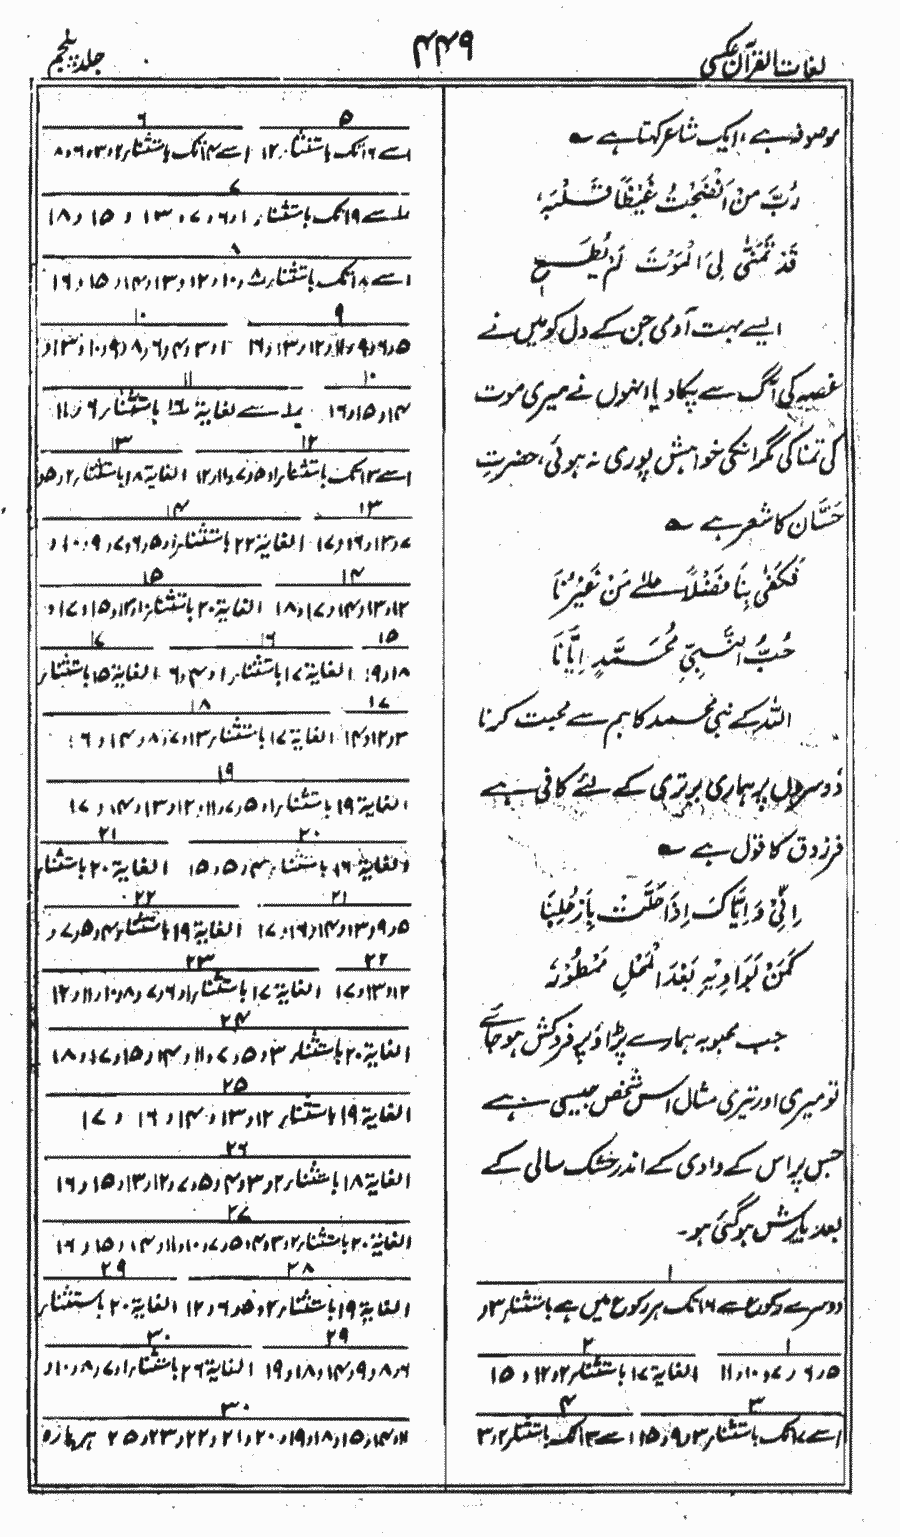 لغات القرآن عکسی
۴۴۹
جلد پنجم
موصوفہ ہے، ایک شاعر کہتا ہے ؎
رُبَّ مَنْ اَنْضَجْتُ غَيْظًا قَلْبَہٗ
قَدْ تَمَنّٰى لِىَ الْمَوْتَ لَمْ يُطَعْ
ایسے بہت آدمی جن کے دل کو میں نے
غصہ کی آگ سے پکا دیا انہوں نے میری موت
کی تمنا کی مگر انکی خواہش پوری نہ ہوئی، حضرت
حَسَّان کا شعر ہے ؎
فَكَفٰى بِنَا فَضْلًا عَلٰى مَنْ غَيْرُنَا
حُبُّ النَّبِىِّ مُحَمَّدٍ اِيَّانَا
اللہ کے نبی محمد کا ہم سے محبت کرنا
دوسروں پر ہماری برتری کے لئے کافی ہے
فرزدق کا قول ہے ؎
اِنِّىْ وَ اِيَّاكَ اِذَا حَلَّتْ بِاَرْحُلِنَا
كَمَنْ بِوَادِيْہِ بَعْدَ الْمَحْلِ مَمْطُوْرٌ
جب محبوبہ ہمارے پڑاؤ پر فروکش ہو جائے
تو میری اور تیری مثال اس شخص جیسی ہے
جس پر اس کے وادی کے اندر خشک سالی کے
بعد بارش ہو گئی ہو۔
۱
دوسرے رکوع سے ۱۶ تک ہر رکوع میں ہے باستثنار ۳ و
۱ ۲
۵ و ۶ و ۷ و ۱۰ و ۱۱ الغایۃ ۱۷ باستثنار ۲ و ۱۲ و ۱۵
۳ ۴
۱ سے ۱۷ تک باستثنار ۳ و ۹ و ۱۵ ۱ سے ۱۳ تک باستثنار ۲ و ۳
۵ ۶
۱ سے ۱۶ تک باستثنار ۱۲ ۱ سے ۱۴ تک باستثنار ۲ و ۳ و ۶ و ۸
۷
۱ سے ۱۹ تک باستثنار ۱ و ۶ و ۷ و ۱۳ و ۱۵ و ۱۸
۸
۱ سے ۱۸ تک باستثنار ۸ و ۱۰ و ۱۲ و ۱۳ و ۱۴ و ۱۵ و ۱۶
۹ ۱۰
۵ و ۶ و ۹ و ۱۱ و ۱۲ و ۱۳ و ۱۶ ۱ و ۳ و ۴ و ۶ و ۸ و ۹ و ۱۰ و ۱۳ و
۱۰ ۱۱
۱۴ و ۱۵ و ۱۶ سے لغایۃ باستثنار ۶ و ۱۱
۱۲ ۱۳
۱ سے ۱۳ تک باستثنار ۱ و ۵ و ۷ و ۱۱ و ۱۲ الغایۃ ۱۸ باستثنار ۲ و ۵ و
۱۳ ۱۴
۷ و ۱۳ و ۱۶ و ۱۷ الغایۃ ۲۲ باستثنار ۱ و ۵ و ۶ و ۷ و ۹ و ۱۰ و
۱۴ ۱۵
۱۲ و ۱۳ و ۱۴ و ۱۷ و ۱۸ الغایۃ ۲۰ باستثنار ۱ و ۱۲ و ۱۵ و ۱۷ و
۱۵ ۱۶ ۱۷
۱۸ و ۱۹ الغایۃ ۱۷ باستثنار ۱ و ۴ و ۶ الغایۃ ۱۵ باستثنار
۱۷ ۱۸
۳ و ۱۲ و ۱۴ الغایۃ ۱۷ باستثنار ۳ و ۷ و ۸ و ۱۴ و ۱۶
۱۹
الغایۃ ۱۹ باستثنار ۱ و ۵ و ۷ و ۱۱ و ۱۲ و ۱۳ و ۱۴ و ۱۷
۲۰ ۲۱
الغایۃ ۱۶ باستثنار ۴ و ۵ و ۱۵ الغایۃ ۲۰ باستثنار
۲۱ ۲۲
۵ و ۹ و ۱۳ و ۱۴ و ۱۶ و ۱۷ الغایۃ ۱۹ باستثنار ۴ و ۵ و ۷ و
۲۲ ۲۳
۱۲ و ۱۳ و ۱۷ الغایۃ ۱۷ باستثنار ۱ و ۶ و ۷ و ۸ و ۱۰ و ۱۱ و ۱۲
۲۴
الغایۃ ۲۰ باستثنار ۳ و ۵ و ۷ و ۱۱ و ۱۴ و ۱۵ و ۱۷ و ۱۸
۲۵
الغایۃ ۱۹ باستثنار ۱۲ و ۱۳ و ۱۴ و ۱۶ و ۱۷
۲۶
الغایۃ ۱۸ باستثنار ۲ و ۳ و ۴ و ۵ و ۷ و ۱۲ و ۱۳ و ۱۵ و ۱۶
۲۷
الغایۃ ۲۰ باستثنار ۲ و ۳ و ۴ و ۵ و ۷ و ۱۰ و ۱۱ و ۱۴ و ۱۵ و ۱۶
۲۸ ۲۹
الغایۃ ۱۹ باستثنار ۲ و ۵ و ۶ و ۱۲ الغایۃ ۲۰ باستثنار
۲۹ ۳۰
۶ و ۸ و ۹ و ۱۴ و ۱۸ و ۱۹ الغایۃ ۲۶ باستثنار ۱ و ۷ و ۸ و ۱۰ و
۳۰
۱۱ و ۱۴ و ۱۵ و ۱۸ و ۱۹ و ۲۰ و ۲۱ و ۲۲ و ۲۳ و ۲۵ ہر پارہ